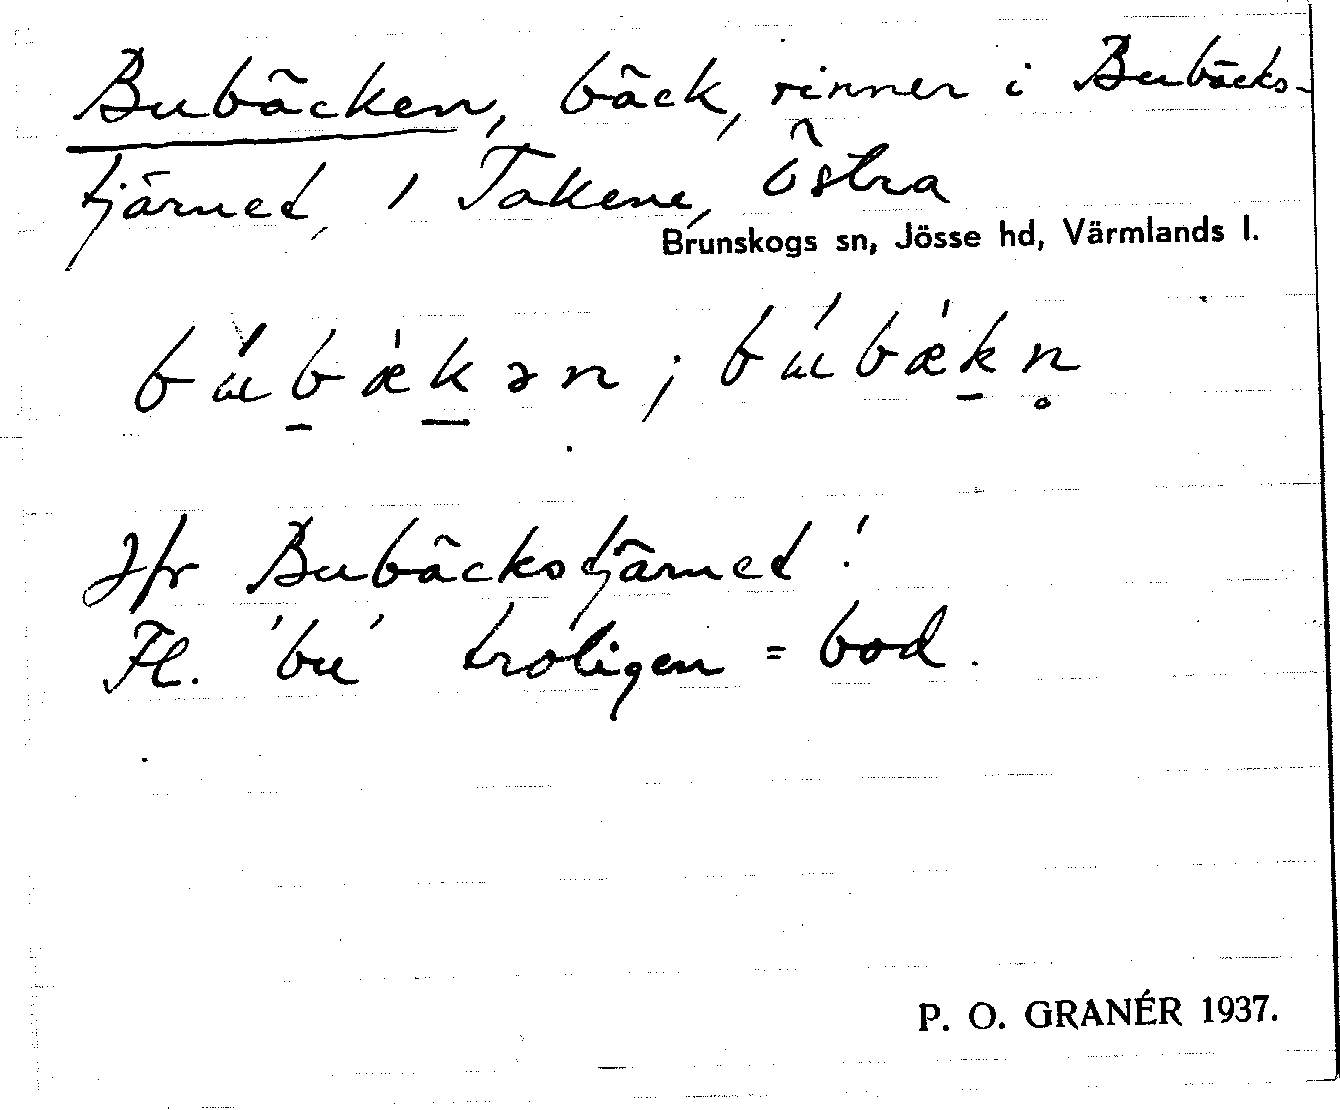 Bubäcken, bäck, rinner i Bubäcks-
tjärnet, 1 Takene, Östra
Brunskogs sn, Jösse hd, Värmlands l.
bu̇́b̠æ̀k̠ən; bu̇́bæ̀k̠n̥
Jfr Bubäckstjärnet!
Fl. 'bu' troligen = bod.
P. O. GRANÉR 1937.